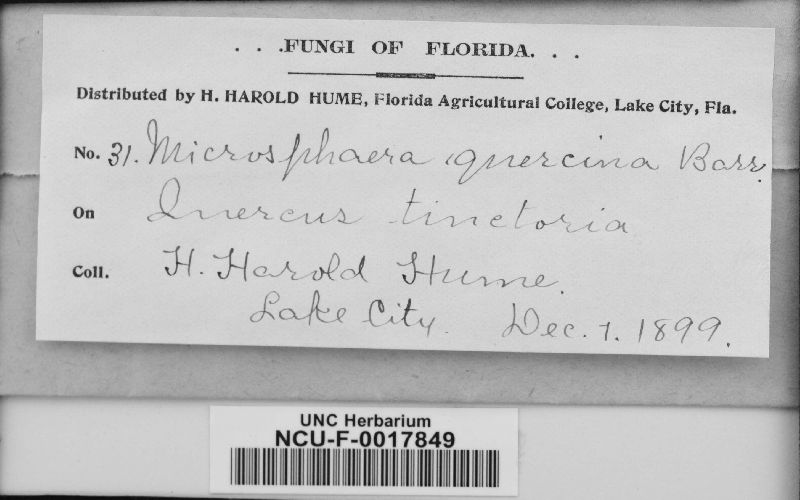 . . .FUNGI OF FLORIDA. . .
Distributed by H. HAROLD HUME, Florida Agricultural College, Lake City, Fla.
No. 31. Microsphaera quercina Barr.
On Quercus tinctoria
Coll. H. Harold Hume.
Lake City. Dec. 7. 1899.
UNC Herbarium
NCU-F-0017849